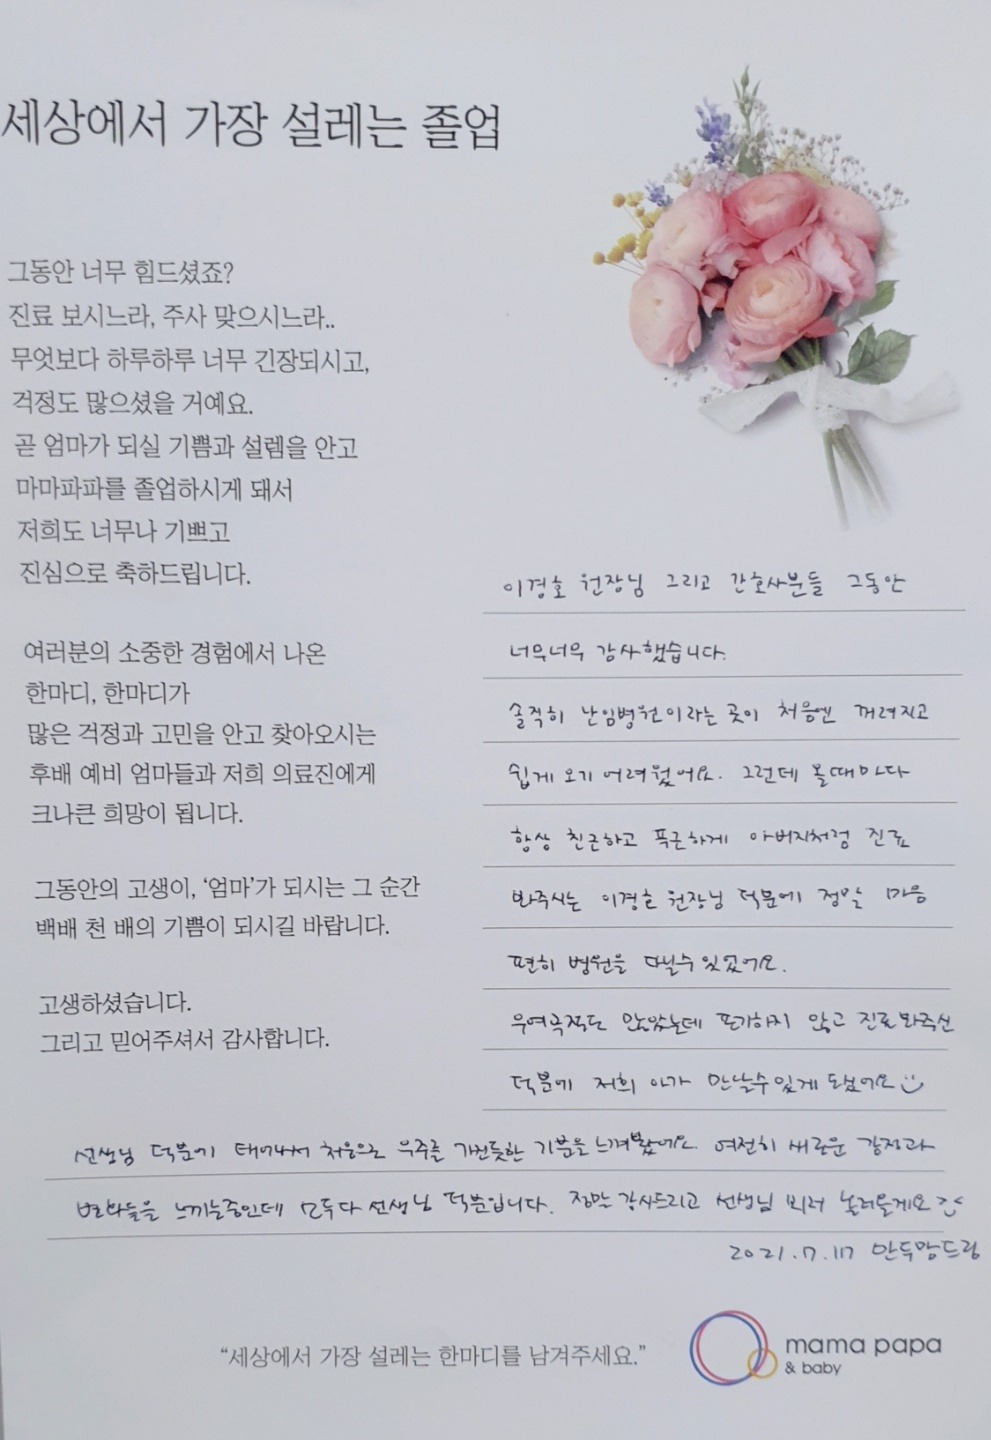 세상에서 가장 설레는 졸업
그동안 너무 힘드셨죠?
진료 보시느라, 주사 맞으시느라..
무엇보다 하루하루 너무 긴장되시고,
걱정도 많으셨을 거예요.
곧 엄마가 되실 기쁨과 설렘을 안고
마마파파를 졸업하시게 돼서
저희도 너무나 기쁘고
진심으로 축하드립니다.
여러분의 소중한 경험에서 나온
한마디, 한마디가
많은 걱정과 고민을 안고 찾아오시는
후배 예비 엄마들과 저희 의료진에게
크나큰 희망이 됩니다.
그동안의 고생이, ‘엄마’가 되시는 그 순간
백배 천 배의 기쁨이 되시길 바랍니다.
고생하셨습니다.
그리고 믿어주셔서 감사합니다.
이경호 원장님 그리고 간호사분들 그동안
너무너무 감사했습니다.
솔직히 난임병원이라는 곳이 처음엔 꺼려지고
쉽게 오기 어려웠어요. 그런데 올때마다
항상 친근하고 푹근하게 아버지처럼 진료
봐주시는 이경호 원장님 덕분에 정말 마음
편히 병원을 다닐수 있었어요.
우여곡절도 많았는데 포기하지 않고 진료봐주신
덕분에 저희 아가 만날수있게 됐어요
선생님 덕분에 태어나서 처음으로 우주를 가진듯한 기분을 느껴봤어요. 여전히 새로운 감정과
변화들을 느끼는중인데 모두다 선생님 덕분입니다. 정말 감사드리고 선생님 뵈러 놀러올게요
2021.7.17 만두맘드림
“세상에서 가장 설레는 한마디를 남겨주세요.”
mama papa
& baby